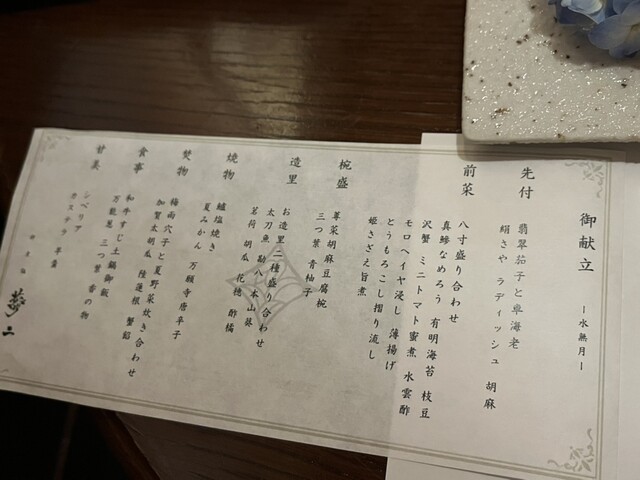 御献立 ー水無月ー
先付
翡翠茄子と車海老
絹さや ラディッシュ 胡麻
前菜
八寸盛り合わせ
真鯵なめろう 有明海苔 枝豆
沢蟹 ミニトマト蜜煮 水雲酢
モロヘイヤ浸し 薄揚げ
とうもろこし摺り流し
姫さざえ旨煮
椀盛
蓴菜胡麻豆腐椀
三つ葉 青柚子
造里
お造里二種盛り合わせ
太刀魚 勘八 本山葵
茗荷 胡瓜 花穂 酢橘
焼物
鱸塩焼き
夏みかん 万願寺唐辛子
焚物
梅雨穴子と夏野菜炊き合わせ
加賀太胡瓜 蓮根 蟹餡
食事
和牛すじ土鍋御飯
万能葱 三つ葉 香の物
甘美
シベリア
カステラ 羊羹